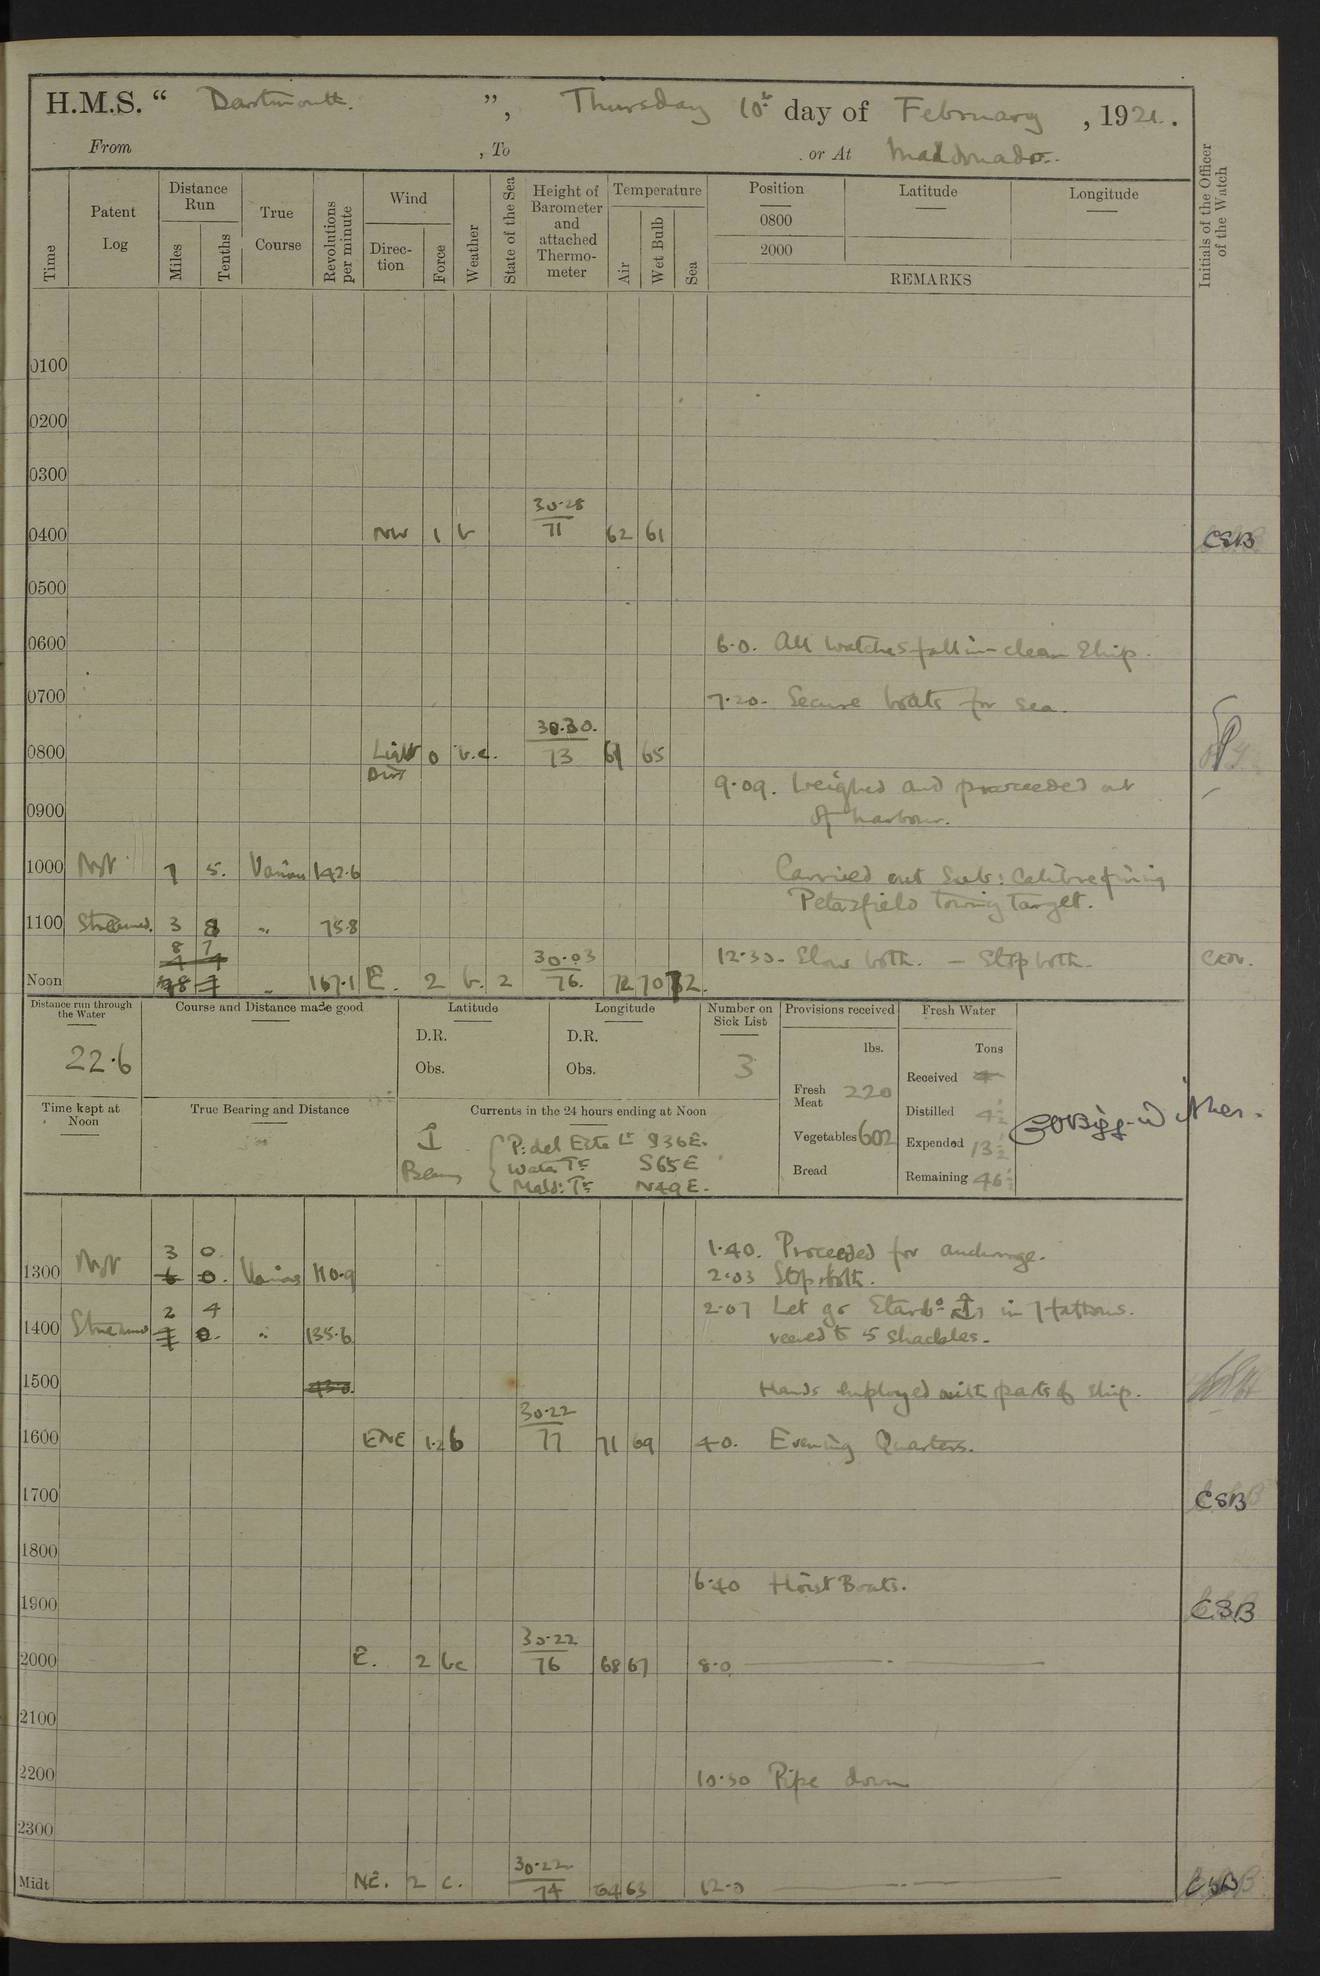 H.M.S. “ Dartmouth. ”, Thursday 10th day of February, 1921.
From , To . or At Maldonado.
Time
Patent Log
Distance Run
Miles
Tenths
True Course
Revolutions per minute
Wind
Direc-tion
Force
Weather
State of the Sea
Height of Barometer and attached Thermo-meter
Temperature
Air
Wet Bulb
Sea
Position
Latitude
Longitude
0800
2000
REMARKS
Initials of the Officer of the Watch
0100
0200
0300
30.28
0400 NW 1 b 71 62 61 CSB
0500
0600 6.0. All watches fall in - clean Ship.
0700 7.20. Secure boats for sea.
30.30.
0800 Light 0 b.c. 73 61 65
Airs
9.09. Weighed and proceeded out
0900 of harbour.
1000 Not 7 5. Various 142.6 Carried out Sub: Calibre firing
Petersfield towing Target.
1100 Streamed. 3 8 " 75.8
8 7 30.03 12.30. Slow both. – Stop both.
Noon " 167.1 E. 2 b. 2 76. 72 70 72.
Distance run through the Water
22.6
Course and Distance made good
Latitude
D.R.
Obs.
Longitude
D.R.
Obs.
Number on Sick List
3
Provisions received
lbs.
Fresh Meat 220
Vegetables 602
Bread
Fresh Water
Tons
Received
Distilled 4½
Expended 13½
Remaining 46½
Time kept at Noon
True Bearing and Distance
Currents in the 24 hours ending at Noon
P: del Este Lt S36E.
Water Tr S65E
Mald: Tr N49E.
3 0 1.40. Proceeded for anchorage.
1300 Not 6 0. Various 110.9 2.03 Stop both.
2 4 2.07 Let go Starbd ⚓ in 7 fathoms.
1400 Streamed 7 0. " 135.6 veered to 5 shackles.
1500 Hands employed with parts of ship.
30.22
1600 ENE 1.2 b 77 71 69 4.0. Evening Quarters.
1700 CSB
1800
6.40 Hoist Boats.
1900 CSB
30.22
2000 E. 2 bc 76 68 67 8.0
2100
2200 10.30 Pipe down
2300
30.22
Midt NE. 2 c. 74 64 63 12.0 CSB